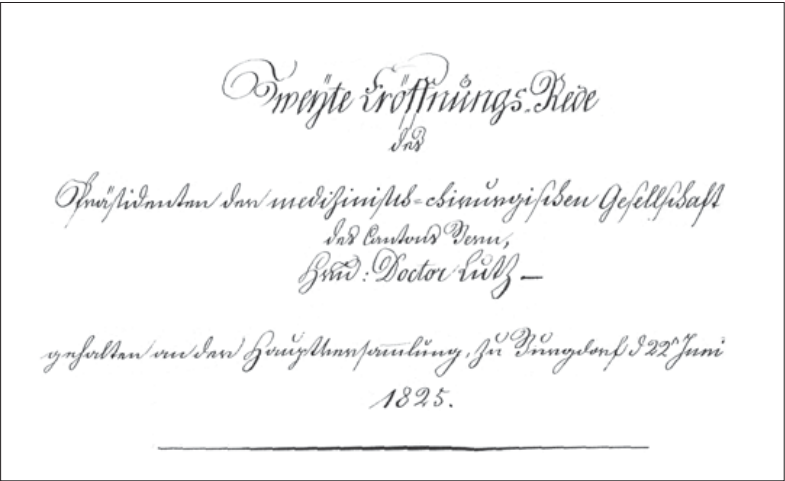 Zweÿte Eröffnungs-Rede
des
Präsidenten der medizinisch-chirurgischen Gesellschaft
des Cantons Bern,
Doctor Lutz —
gehalten an der Hauptversam̅lung, zu Burgdorf d 22ⁿ Juni
1825.